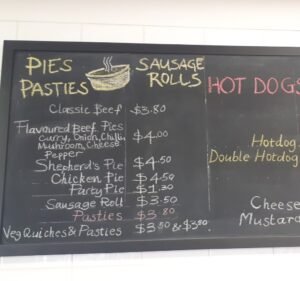 PIES
PASTIES
SAUSAGE
ROLLS
Classic Beef $3.80
Flavoured Beef Pies
Curry, Onion, Chilli, $4.00
Mushroom, Cheese
Pepper
Shepherd's Pie $4.50
Chicken Pie $4.50
Party Pie $1.30
Sausage Roll $3.50
Pasties $3.80
Veg Quiches & Pasties $3.50 & $3.80
HOT DOGS
Hotdog
Double Hotdog
Cheese
Mustard